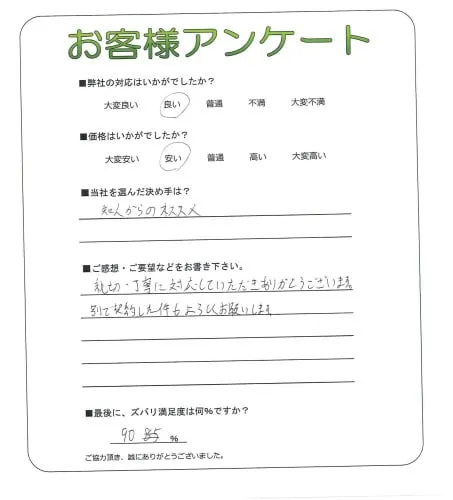 お客様アンケート
■弊社の対応はいかがでしたか？
大変良い 良い 普通 不満 大変不満
■価格はいかがでしたか？
大変安い 安い 普通 高い 大変高い
■当社を選んだ決め手は？
知人からのオススメ
■ご感想・ご要望などをお書き下さい。
親切・丁寧に対応していただきありがとうございます
別で契約した件もよろしくお願いします
■最後に、ズバリ満足度は何％ですか？
90 %
ご協力頂き、誠にありがとうございました。